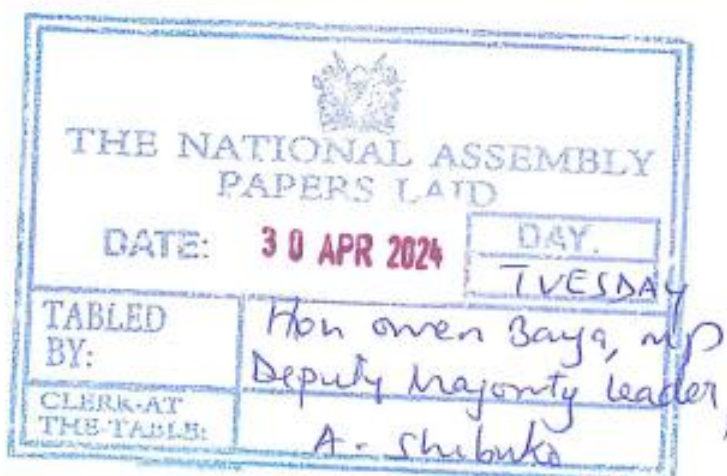 THE NATIONAL ASSEMBLY
PAPERS LAID
DATE: 30 APR 2024
DAY.
TUESDAY
TABLED
BY:
Hon Owen Baya, MP
Deputy Majority Leader
CLERK-AT
THE-TABLE:
A. Shibuko